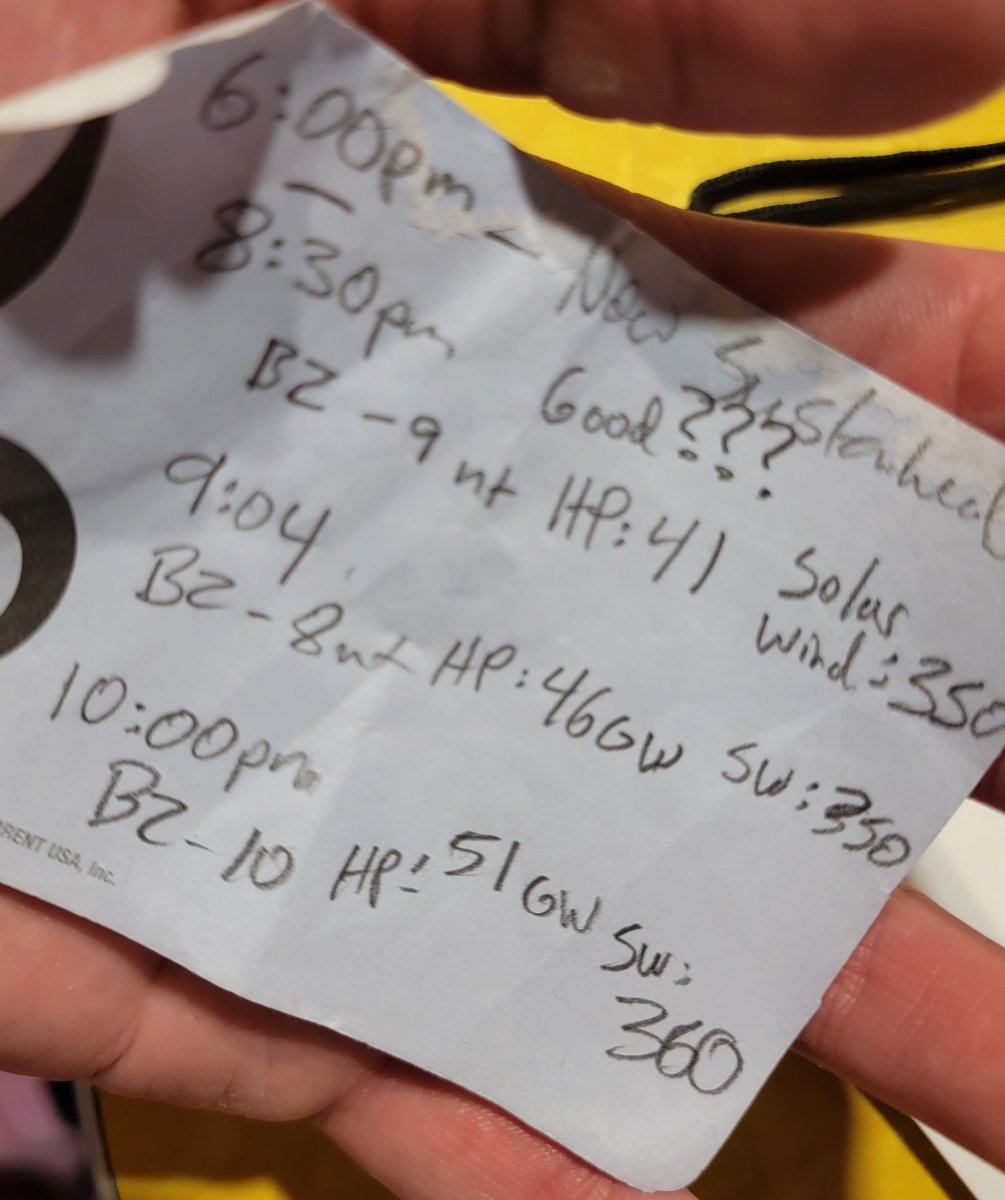 6:00pm - Now
8:30pm Good???
BZ -9 nt HP: 41 Solar
Wind: 350
9:04
BZ - 8nt HP: 46GW SW: 350
10:00pm
BZ - 10 HP: 51GW SW:
360
RENT USA, Inc.